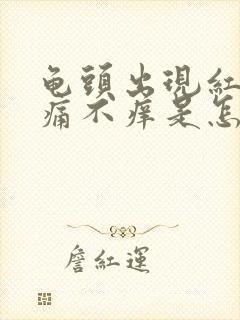 龟頭出現紅
痛不痒是怎
詹紅運